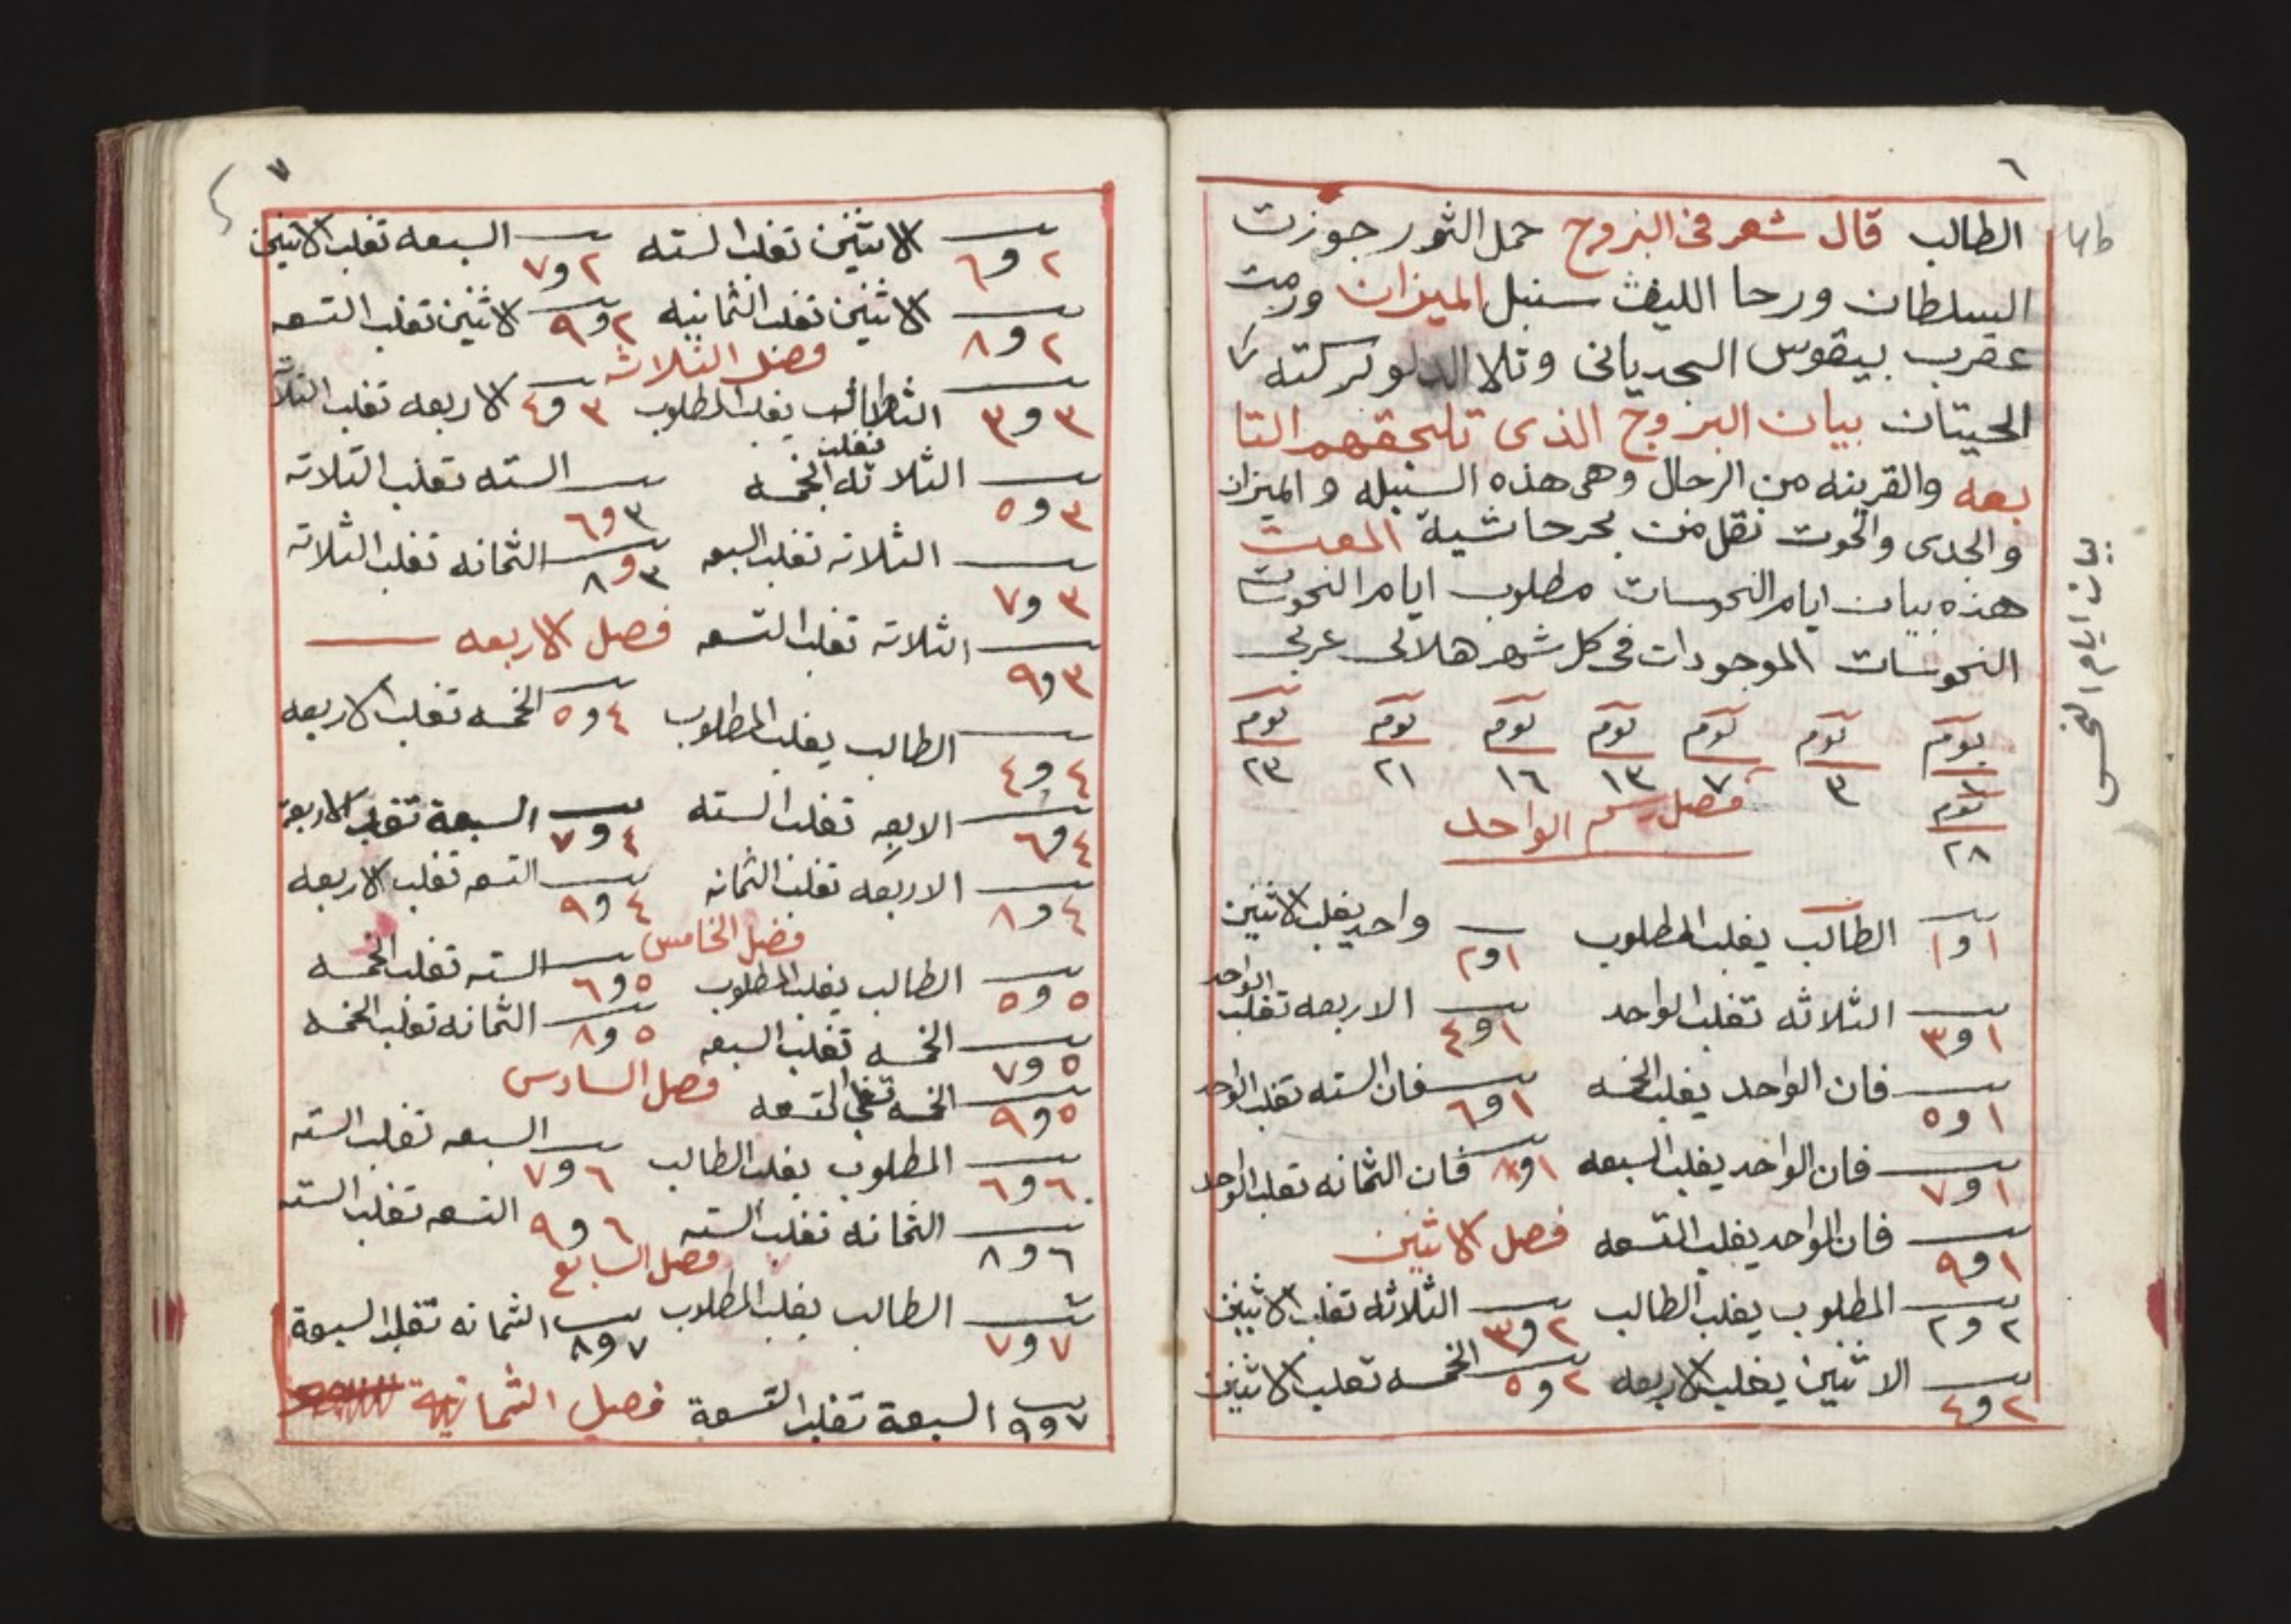 ٦
الطالب قال شعر فى البزوج حمل الثور جوزت
السلطان ورحا الليث سنبل الميزان ورمت
عقرب بيقوس الجديانى وتلا الدلو بركته
الحيتان بيان البروج الذى تلحقهم التا
بعه والقرينه من الرجال وهى هذه السنبله والميزان
والجدى والحوت نقل من بحر حاشية
هذه بيان ايام النحوسات مطلوب ايام النحوسات
النحوسات الموجودات فى كل شهر هلالى عربى
يوم يوم يوم يوم يوم يوم يوم
٣ ٧ ١٣ ١٦ ٢١ ٢٣
يوم
٢٨
فصل رسم الواحد
١و١ الطالب يغلب المطلوب ١و٢ واحد يغلب الاثنين
١و٣ الثلاثه تغلب الواحد ١و٤ الاربعه تغلب الواحد
١و٥ فان الواحد يغلب الخمسه ١و٦ فان السته تغلب الواحد
١و٧ فان الواحد يغلب السبعه ١و٨ فان الثمانه تغلب الواحد
١و٩ فان الواحد يغلب التسعه فصل الاثنين
٢و٢ المطلوب يغلب الطالب ٢و٣ الثلاثه تغلب الاثنين
٢و٤ الاثنين يغلب الاربعه ٢و٥ الخمسه تغلب الاثنين
بيان ايام النحس
٧
٢و٦ الاثنين تغلب السته ٢و٧ السبعه تغلب الاثنين
٢و٨ الاثنين تغلب الثمانيه ٢و٩ الاثنين تغلب التسعه
فصل الثلاثه
٣و٣ الطالب يغلب المطلوب ٣و٤ الاربعه تغلب الثلاثه
٣و٥ الثلاثه تغلب الخمسه ٣و٦ السته تغلب الثلاثه
٣و٧ الثلاثه تغلب السبعه ٣و٨ الثمانه تغلب الثلاثه
٣و٩ الثلاثه تغلب التسعه فصل الاربعه
٤و٤ الطالب يغلب المطلوب ٤و٥ الخمسه تغلب الاربعه
٤و٦ الاربعه تغلب السته ٤و٧ السبعة تغلب الاربعة
٤و٨ الاربعه تغلب الثمانه ٤و٩ التسعه تغلب الاربعه
فصل الخامس
٥و٥ الطالب يغلب المطلوب ٥و٦ السته تغلب الخمسه
٥و٧ الخمسه تغلب السبعه ٥و٨ الثمانه تغلب الخمسه
٥و٩ الخمسه تغلب التسعه فصل السادس
٦و٦ المطلوب يغلب الطالب ٦و٧ السبعه تغلب السته
٦و٨ الثمانه تغلب السته ٦و٩ التسعه تغلب السته
فصل السابع
٧و٧ الطالب يغلب المطلوب ٧و٨ الثمانه تغلب السبعة
٧و٩ السبعة تغلب التسعة فصل الثمانية